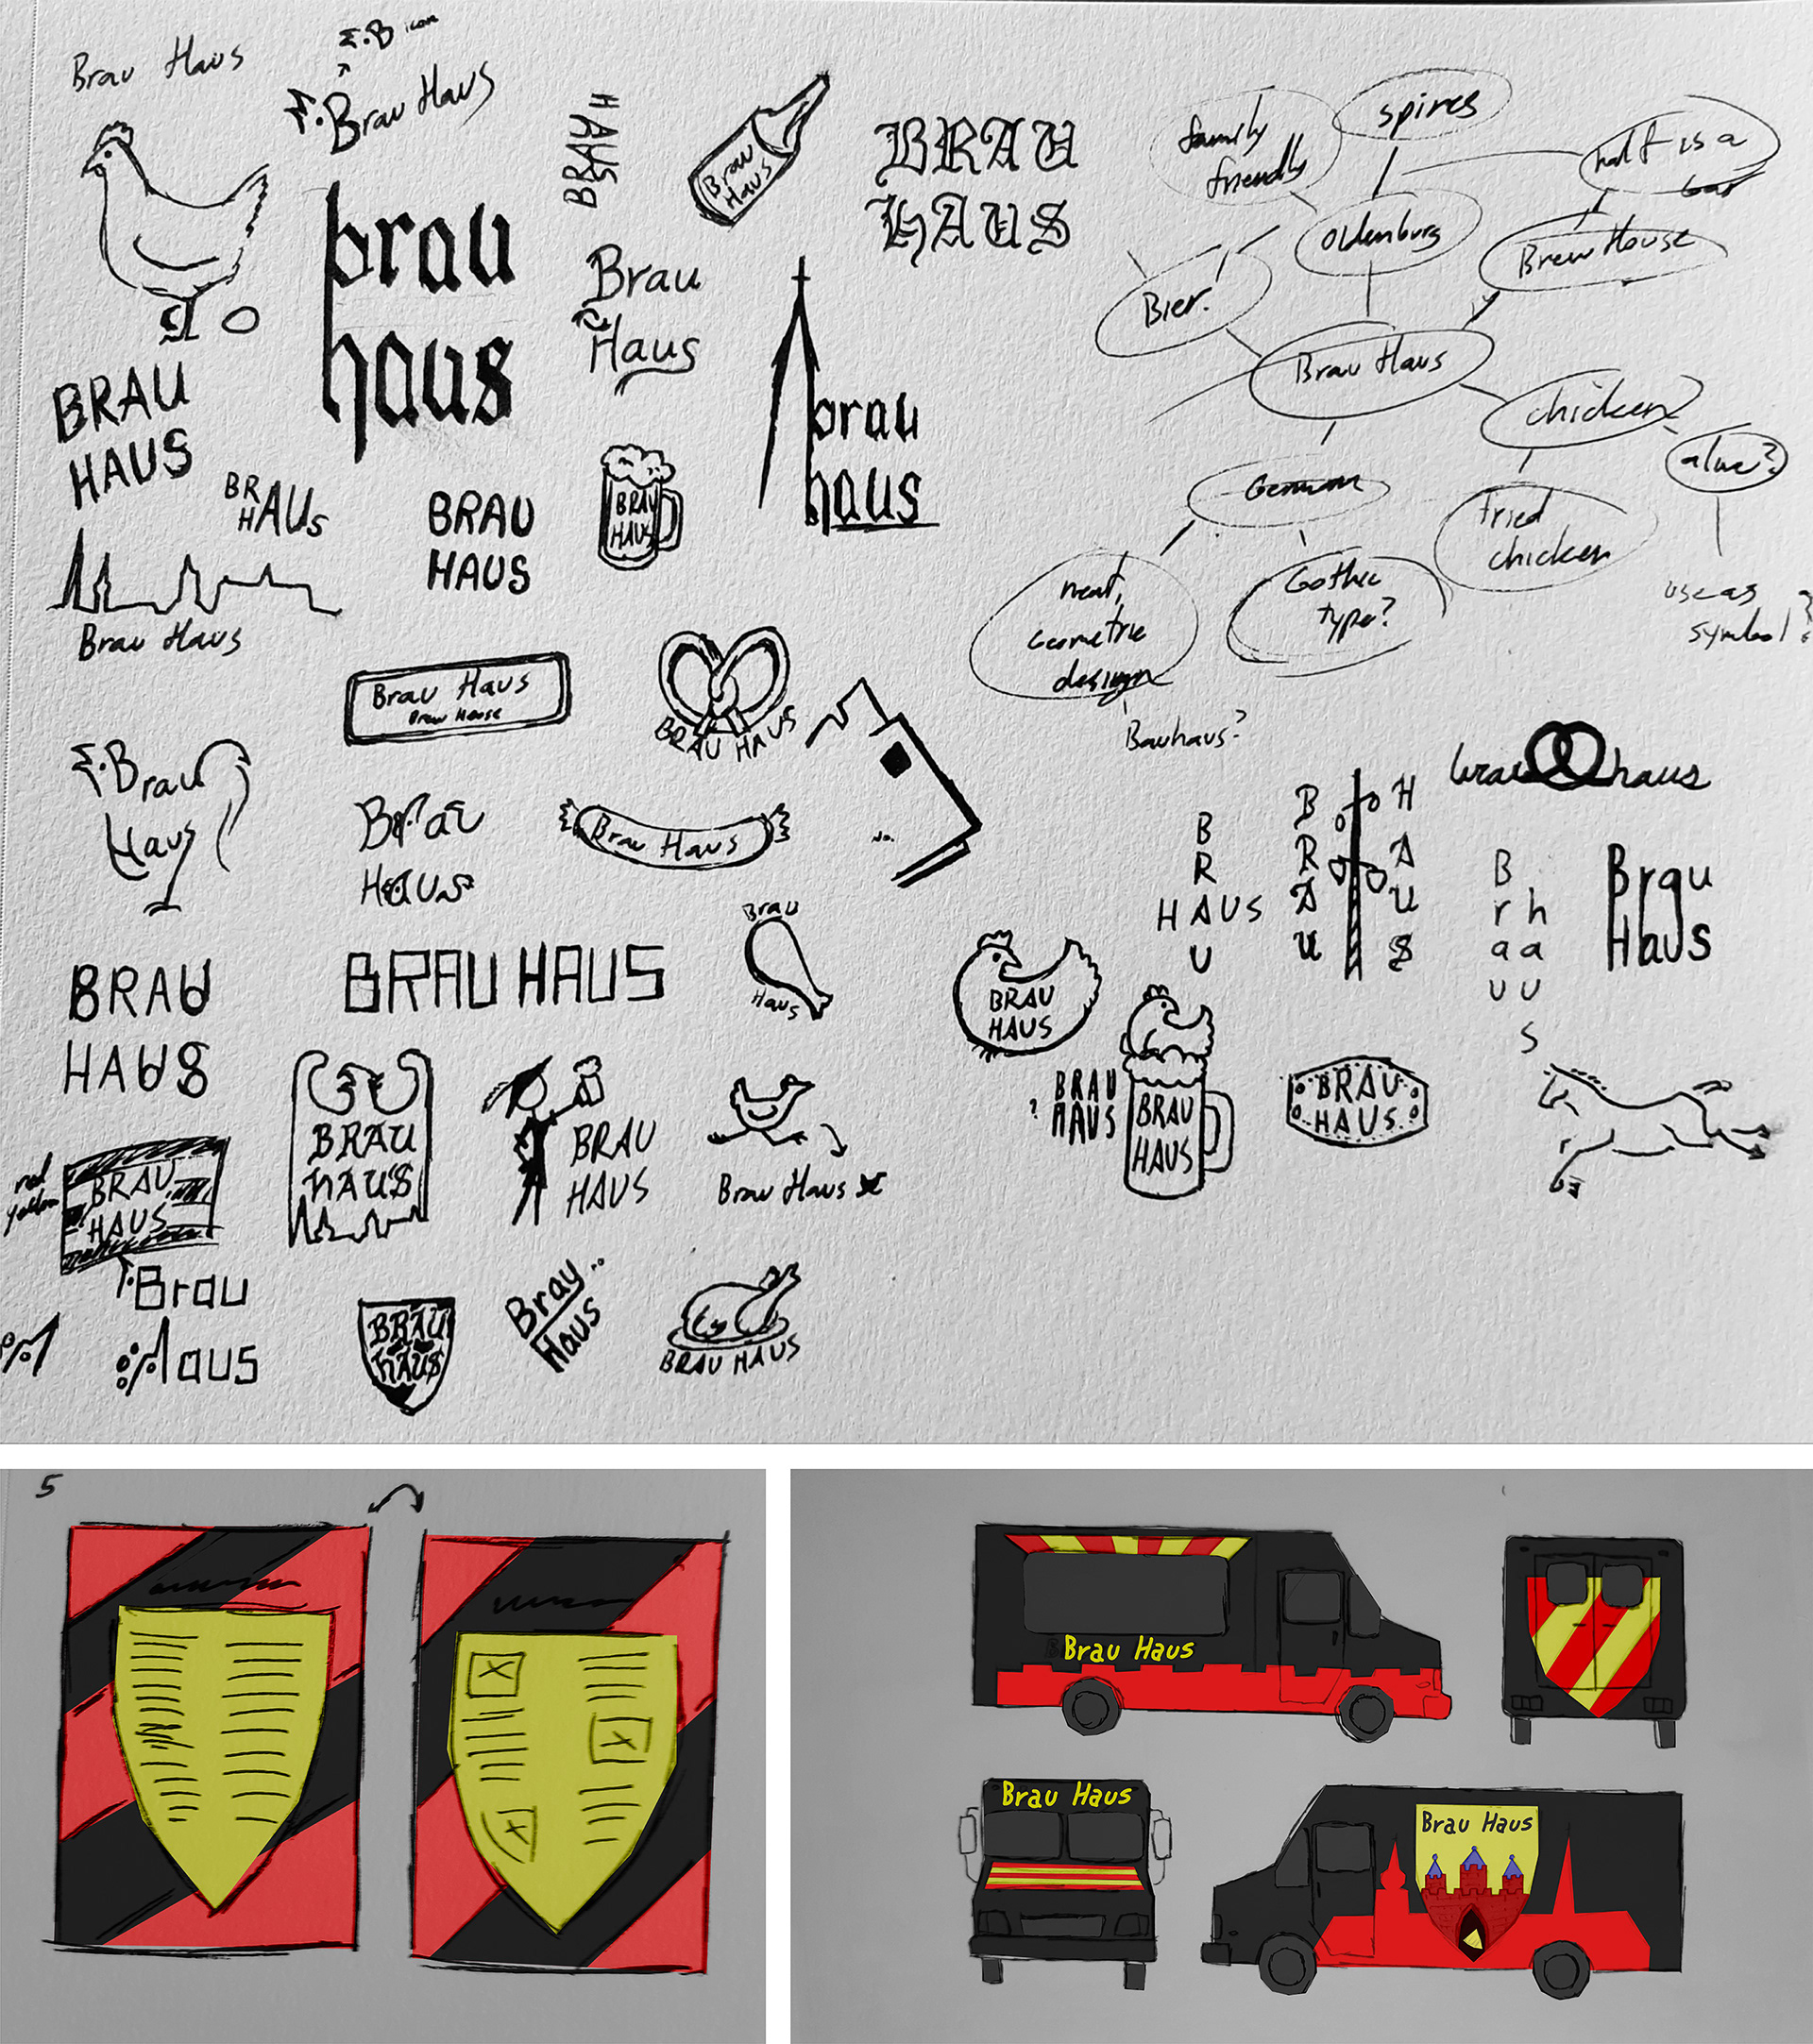 Brau Haus
B icon
Brau Haus
BRAU
HAUS
Brau
Haus
BRAU
HAUS
family
friendly
spires
half is a
bar
brau
haus
Brau
Haus
Oldenburg
Brew House
Bier?
BRAU
HAUS
brau
haus
Brau Haus
chicken?
alive?
BR
HAUS
BRAU
HAUS
BRAU
HAUS
German
fried
chicken
Brau Haus
neat,
Geometric
design
Gothic
type?
use as
symbol?
Bauhaus?
Brau Haus
Brew House
BRAU HAUS
brau haus
Brau
Haus
Brau
Haus
Brau Haus
B
R
HAUS
U
B H
R A
A U
U S
B
r h
a a
u u
s
Brau
Haus
BRAU
HAUS
BRAU HAUS
Brau
Haus
BRAU
HAUS
BRAU
HAUS
BRAU
HAUS
Brau Haus
? BRAU
HAUS
BRAU
HAUS
BRAU
HAUS
red
yellow
BRAU
HAUS
Brau
Haus
BRAU
HAUS
Brau
Haus
BRAU HAUS
5
Brau Haus
Brau Haus
Brau Haus